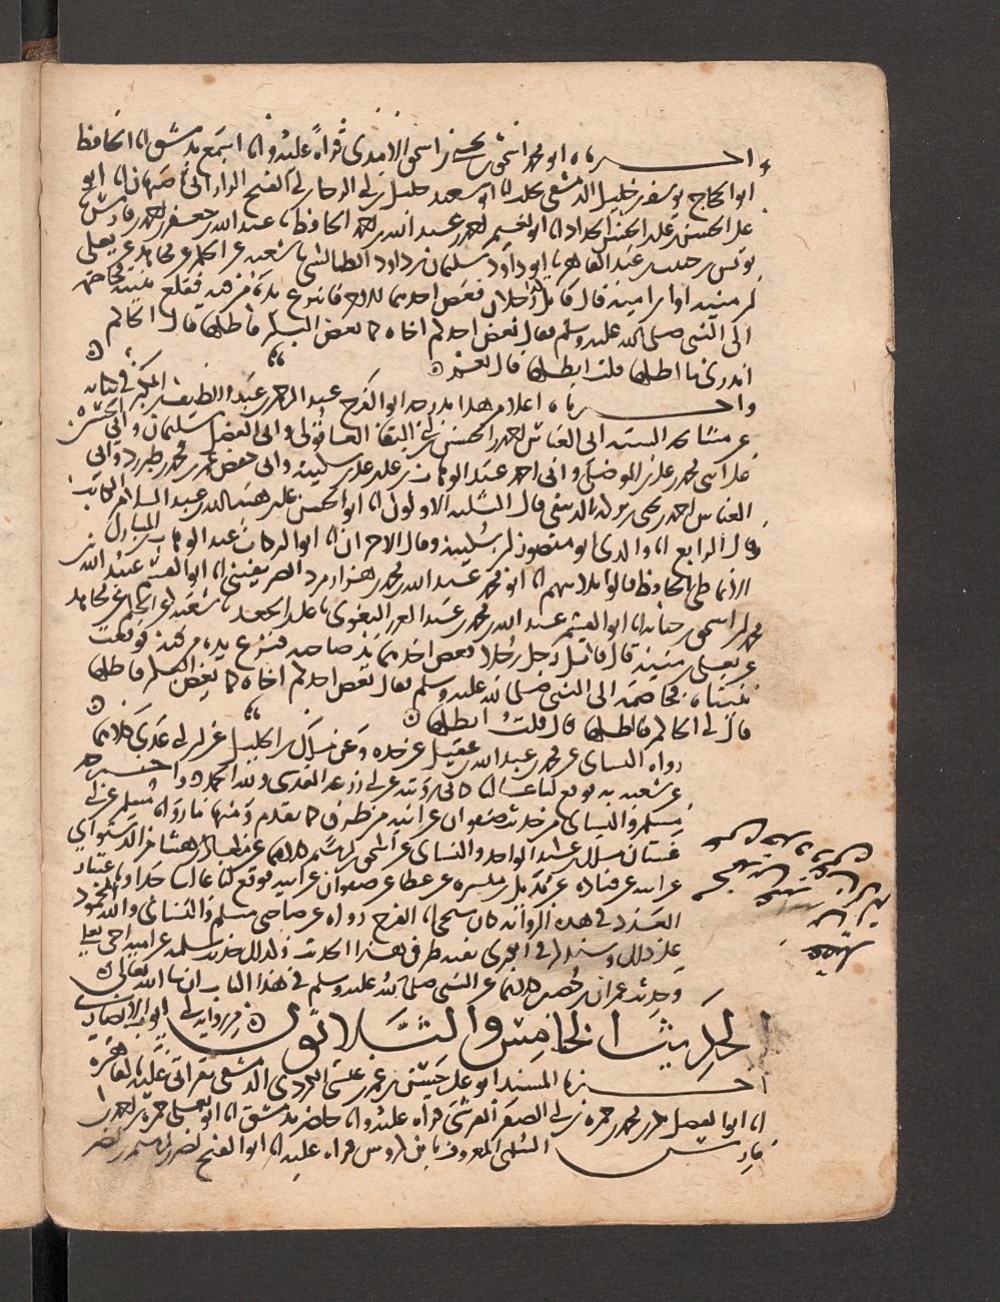 اخبرنا ابو محمد اسحق بن يحيى بن اسحق الامدي قراة عليه وانا اسمع بدمشق انا الحافظ
ابو الحجاج يوسف بن خليل الدمشقي بحلب انا ابو سعيد خليل بن ابي الرجا بن ابي الفتح الراراني باصبهان انا ابو
علي الحسن بن احمد بن الحسن الحداد انا ابو نعيم احمد بن عبد الله بن احمد الحافظ نا عبد الله بن جعفر بن احمد بن فارس نا
يونس بن حبيب بن عبد القاهر نا ابو داود سليمان بن داود الطيالسي نا شعبة عن الحكم عن مجاهد عن يعلى
بن منية او ابن امية قال قاتل رجلان فعض احدهما يد الاخر فانتزع يده من فيه فقلع ثنيته فخاصمه
الى النبي صلى الله عليه وسلم فقال يعض احدكم اخاه كما يعض البكر فابطلها قال الحاكم
اتدري ما ابطلها قلت ابطلها قال نعم
واخبرنا اعلا من هذا بدرجة ابو الفرج عبد الرحمن بن عبد اللطيف المكبر في كتابه
عن مشايخه الستة ابي العباس احمد بن الحسن بن ابي البقا العاقولي وابي الفضل سليمان وابي الحسن
علي ابني محمد بن علي الموصلي وابي احمد عبد الوهاب بن علي بن علي بن سكينة وابي حفص عمر بن محمد بن طبرزد وابي
العباس احمد بن يحيى بن بركة الدبيقي قال الثلثة الاولون انا ابو الحسن علي بن هبة الله بن عبد السلام الكاتب
وقال الرابع انا والدي ابو منصور بن سكينة وقال الاخران انا ابو البركات عبد الوهاب بن المبارك
الانماطي الحافظ قالوا ثلاثتهم انا ابو محمد عبد الله بن محمد بن هزارمرد الصريفيني انا ابو القسم عبيد الله بن
محمد بن اسحق بن حبابة انا ابو القسم عبد الله بن محمد بن عبد العزيز البغوي نا علي بن الجعد نا شعبة عن الحكم عن مجاهد
عن يعلى بن منية قال قاتل رجل رجلا فعض احدهما يد صاحبه فنزع يده من فيه فوقعت
ثنيتاه فخاصمه الى النبي صلى الله عليه وسلم فقال يعض احدكم اخاه كما يعض البكر فابطلها
قال لي الحاكم فابطلها قال قلت ابطلها
رواه النساي عن محمد بن عبد الله بن عقيل عن جده وعن مالك بن الخليل عن ابن ابي عدي كلاهما
عن شعبة به فوقع لنا عاليا كاني رويته عن ابي زرعة المقدسي ولله الحمد واخرجه
مسلم والنساي من حديث صفوان عن ابيه من طرق كما تقدم ومنها ما رواه مسلم عن ابي
غسان مالك بن عبد الواحد والنساي عن اسحق بن ابراهيم كلاهما عن معاذ بن هشام الدستواي
عن ابيه عن قتادة عن بديل بن ميسرة عن عطا عن صفوان عن ابيه فوقع لنا عاليا جدا وباعتبار
العدد في هذه الرواية كان شيخنا ابا الفرج رواه عن صاحبي مسلم والنساي ولله الحمد
على ذلك وستاتي في اخرى بقية طرق هذا الحديث وكذلك حديث سلمة بن امية اخي يعلى
وحديث عمران بن حصين كلاهما عن النبي صلى الله عليه وسلم في هذا الكتاب ان شا الله تعالى
الحديث الخامس والثلاثون من رواية ابي ايوب الانصاري
اخبرنا المسند ابو علي حسن بن عمر بن عيسى الكردي الدمشقي بقراتي عليه بالقاهرة
انا ابو الفضل مكرم بن محمد بن حمزة بن ابي الصقر القرشي قراة عليه وانا حاضر بدمشق انا ابو يعلى حمزة بن احمد بن
فارس السلمي المعروف بابن كروس قراة عليه انا ابو الفتح نصر بن ابراهيم بن نصر